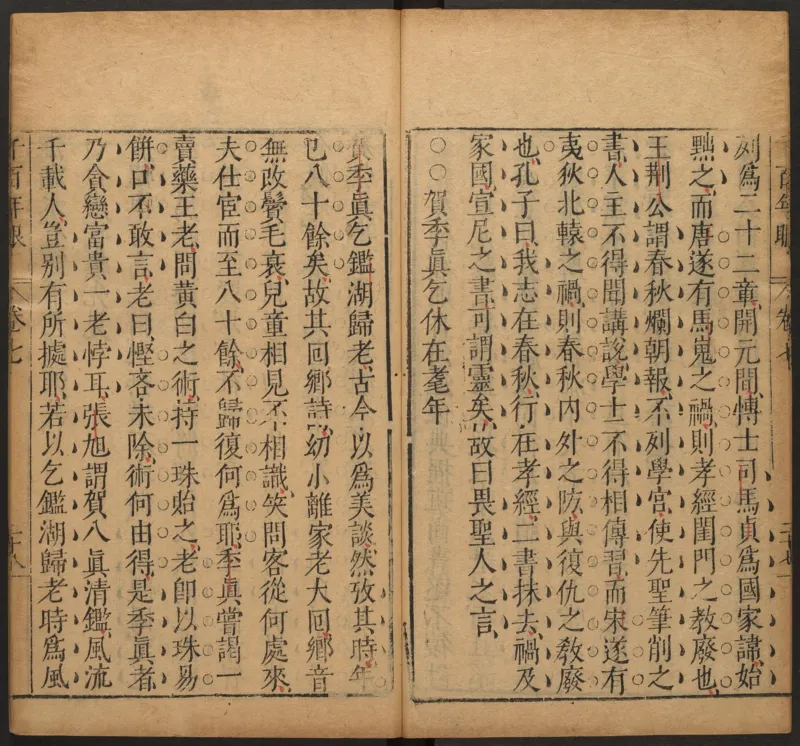 列爲二十二章開元間愽士司馬貞爲國家諱始
黜之而唐遂有馬嵬之禍則孝經閨門之教廢也
王荆公謂春秋爛朝報不列學官使先聖筆削之
書人主不得聞講說學士不得相傳習而宋遂有
夷狄北轅之禍則春秋内外之防與復仇之教廢
也孔子曰我志在春秋行在孝經二書抹去禍及
家國宣尼之書可謂靈矣故曰畏聖人之言
○○賀季眞乞休在耄年
賀季眞乞鑑湖歸老古今以爲美談然攷其時年
已八十餘矣故其回鄉詩幼小離家老大回鄉音
無改鬢毛衰兒童相見不相識笑問客從何處來
夫仕宦而至八十餘不歸復何爲耶季眞嘗謁一
賣藥王老問黃白之術持一珠貽之老卽以珠易
餅口不敢言老曰慳吝未除術何由得是季眞者
乃貪戀富貴一老悖耳張旭謂賀八眞清鑑風流
千載人豈别有所據耶若以乞鑑湖歸老時爲風
千百年眼
卷七